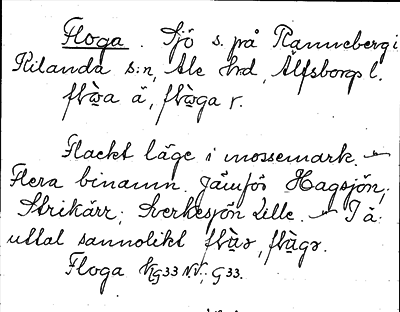 Floga. Sjö s. på Rannebergi
Kilanda s:n, Ale hd, Älfsborgs l.
flὼa ä, flὼga r.
Flackt läge i mossemark. –
Flera binamn. Jämför Hagsjön;
Strikärr; Sverkesjön Lille. – I ä.
uttal sannolikt flu̇̀ə, flu̇̀gə.
Floga G33 N.V; G33.